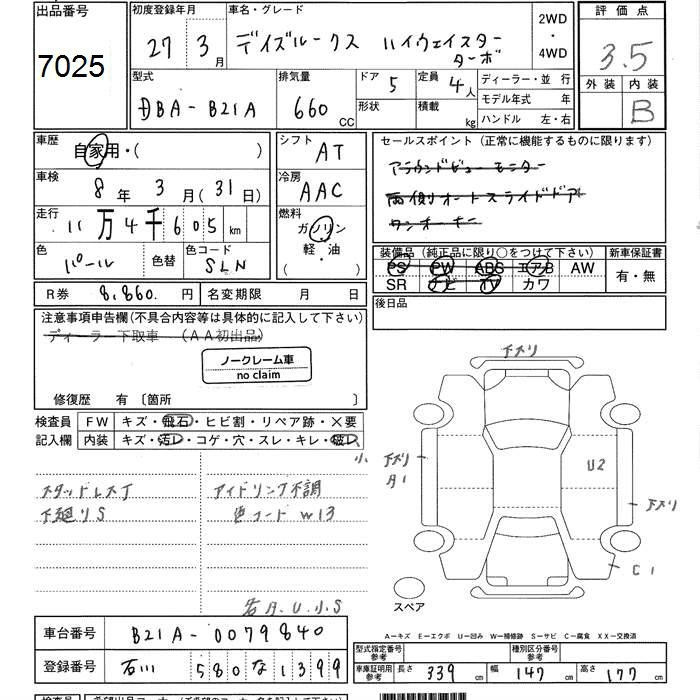 出品番号 7025
初度登録年月 27 3月
車名・グレード デイズルークス ハイウェイスター ターボ
2WD・4WD
評価点 3.5
外装 内装 B
型式 DBA-B21A
排気量 660 CC
ドア 5 定員 4人
形状 積載 kg
ディーラー・並行
モデル年式 年
ハンドル 左・右
車歴 自家用・( )
シフト AT
車検 8年 3月(31日)
冷房 AAC
走行 11万4千605 km
燃料 ガソリン 軽・油 ( ・ )
色 パール 色替 色コード SLN
R券 8,860.円 名変期限 月 日
セールスポイント (正常に機能するものに限ります)
アラウンドビューモニター
両側オートスライドドア
ワンオーナー
装備品 (純正品に限り○をつけて下さい) 新車保証書
PS PW ABS エアB AW 有・無
SR ナビ TV カワ
後日品
注意事項申告欄(不具合内容等は具体的に記入して下さい)
ディーラー下取車 (AA初出品)
ノークレーム車
no claim
修復歴 有〔箇所 〕
検査員 FW キズ・飛石・ヒビ割・リペア跡・×要
記入欄 内装 キズ・汚レ・コゲ・穴・スレ・キレ・破レ
小
スタッドレスT
下廻りS
アイドリング不調
色コード W13
若A.U.小S
下ズリ
下ズリ
A1
U2
下ズリ
C1
スペア
A―キズ E―エクボ U―凹み W―補修跡 S―サビ C―腐食 XX―交換済
車台番号 B21A-0079840
登録番号 石川 580 な 1399
型式指定番号 参考 種別区分番号 参考
車庫証明用 参考 長さ 339 cm 幅 147 cm 高さ 177 cm